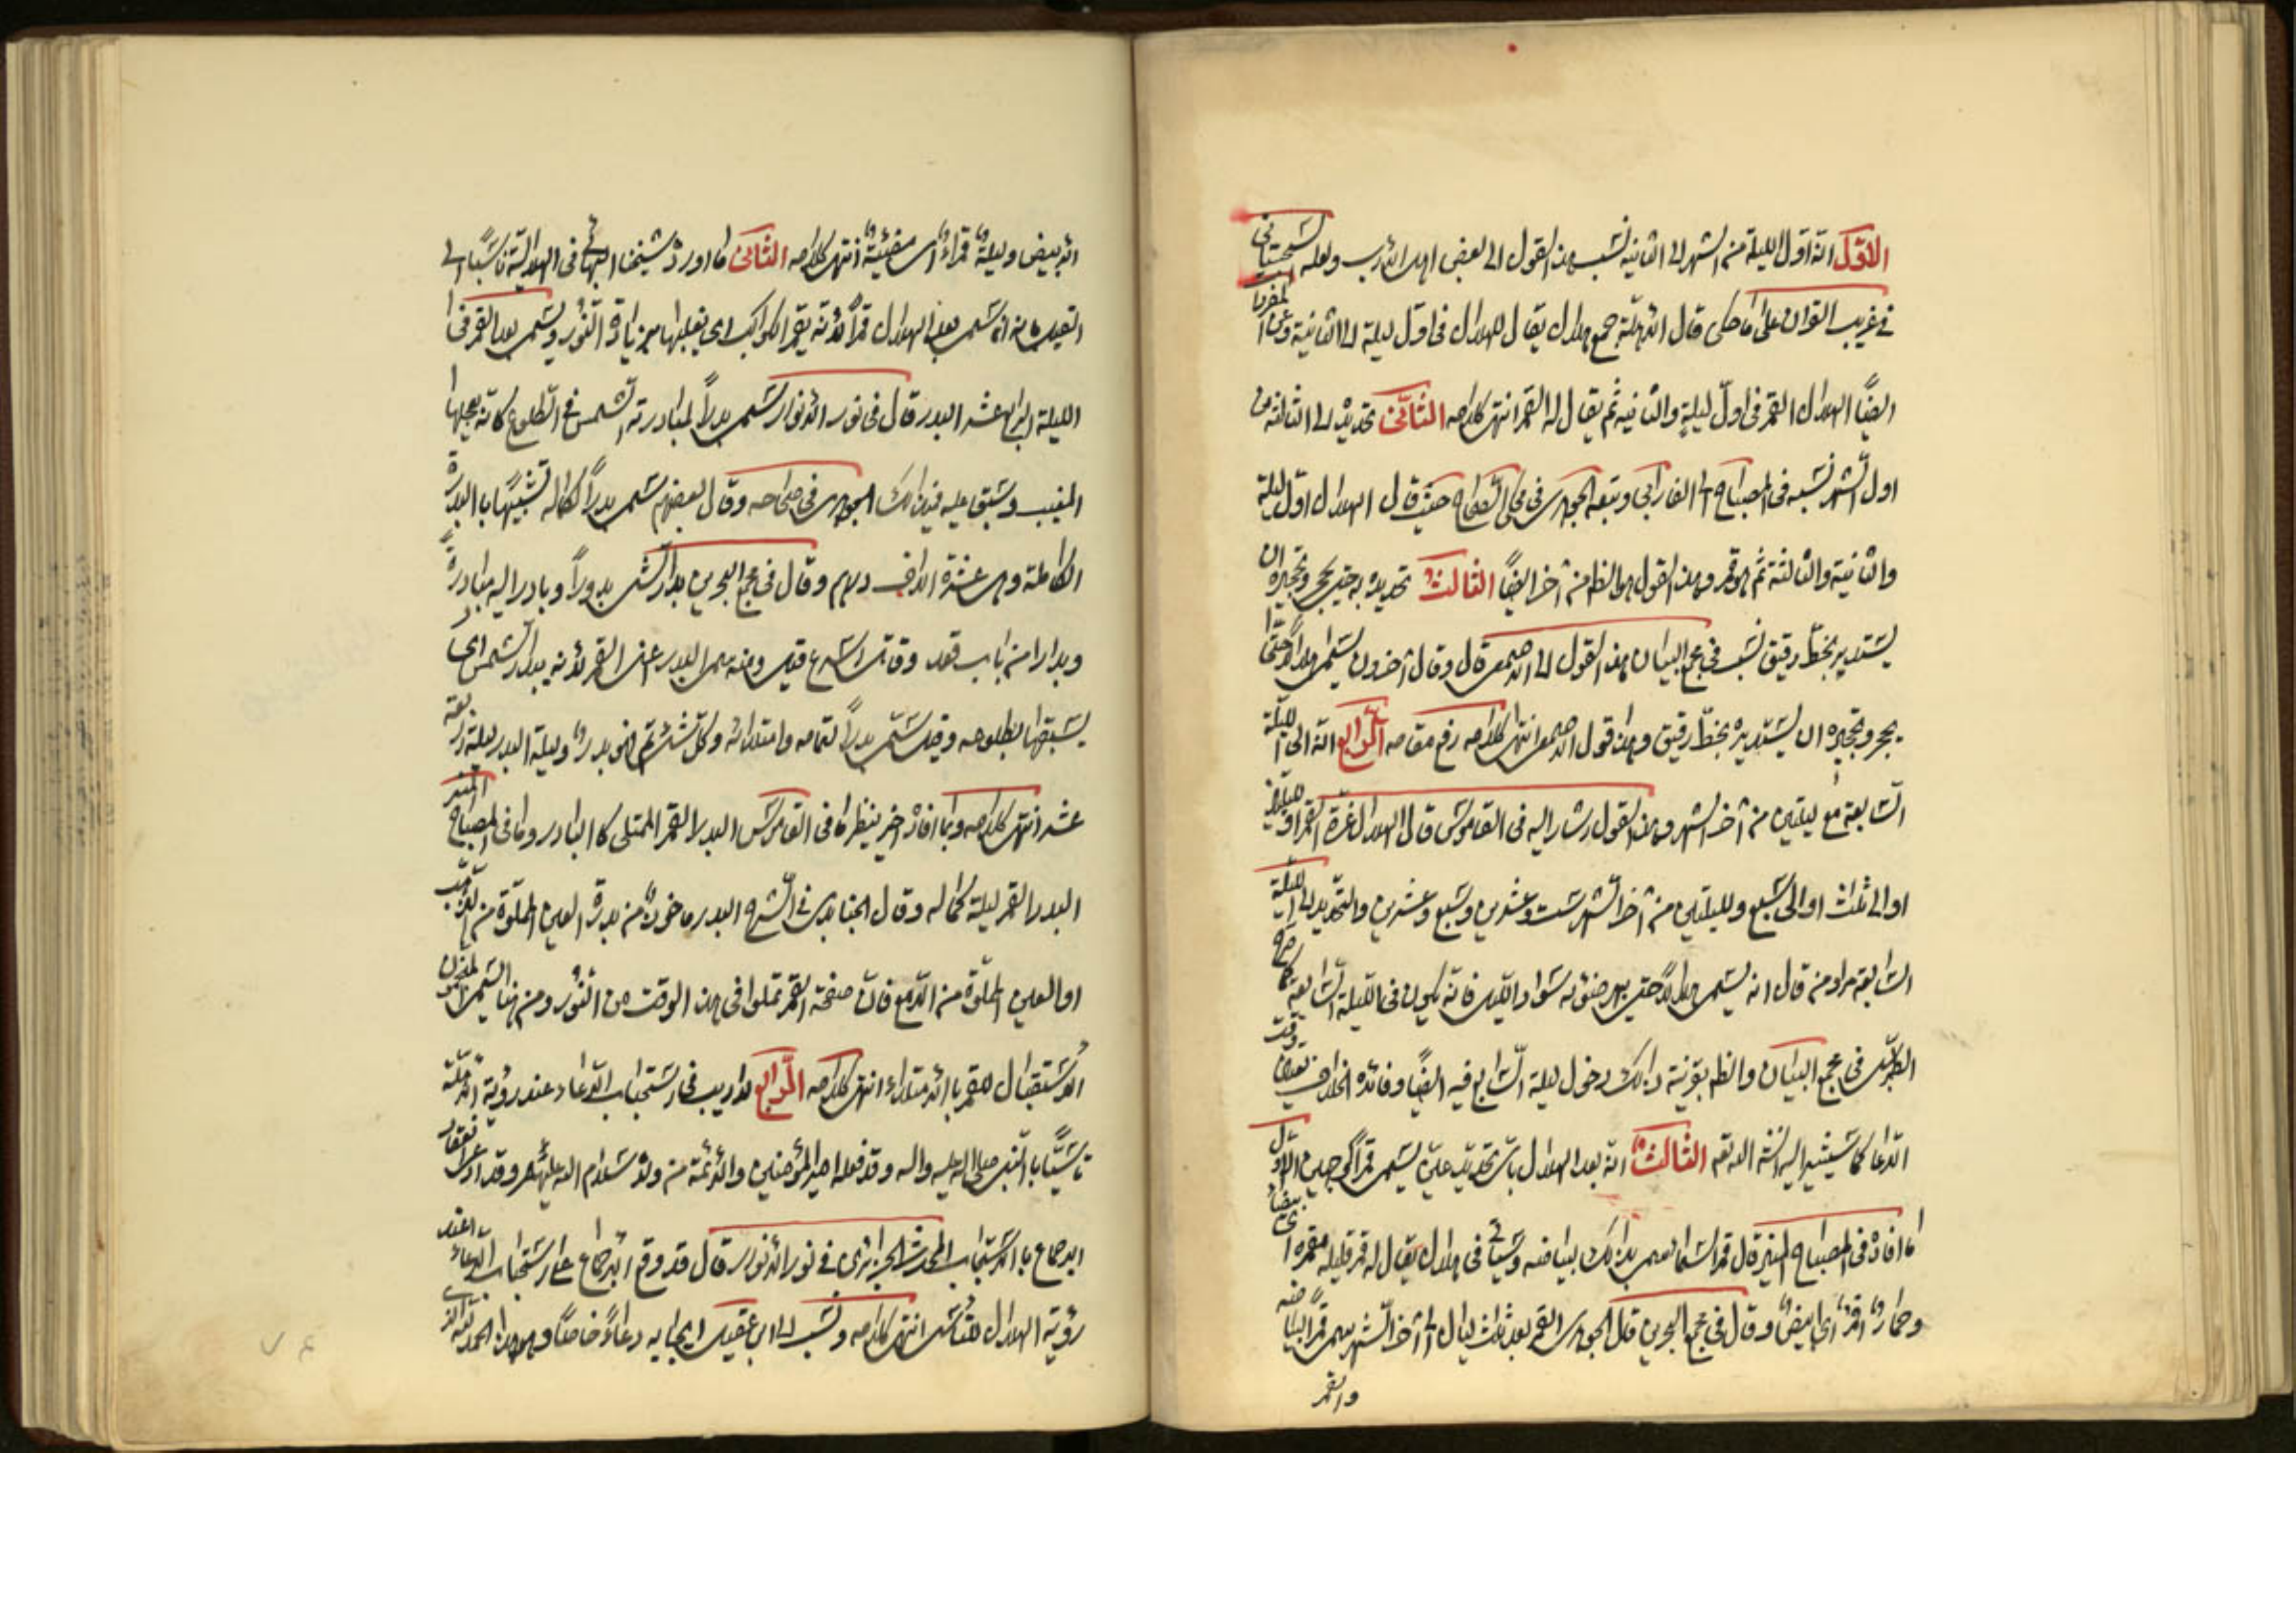 الاول انه اول الليلة من الشهر الى الثانية نسب هذا القول الى بعض اهل الادب ولعله السجستانى
فى غريب القران على ما حكى قال الاهلة جمع هلال يقال للهلال فى اول ليلة الى الثانية وعن المغرب
ايضًا الهلال القمر فى اول ليلةٍ والثانية ثم يقال له القمر انتهى كلامه الثانى تحديده الى الثالثة من
اول الشهر نسبه فى المصباح الى الفارابى وتبعه الجوهرى فى محكى الصحاح حيث قال الهلال اول ليلة
والثانية والثالثة ثم هو قمر وهذا القول هو الظاهر من آخر ايضًا الثالث تحديده به حتى يحجر وتحجيره ان
يستدير بخطّ رقيق نسب فى مجمع البيان هذا القول الى الاصمعى قال وقال آخرون يسمى هلالًا حتى
يحجر وتحجيره ان يستديره بخطّ رقيق وهذا قول الاصمعى انتهى كلامه رفع مقامه الرابع انه الى الليلة
السّابعة مع ليلتين من آخر الشهر وهذا القول اشار اليه فى القاموس قال الهلال غرّة القمر او لليلتين
او الى ثلث او الى سبع ولليلتين من آخر الشهر ست وعشرين وسبع وعشرين والتحديد الى الليلة
السّابعة مراد من قال انه يسمى هلالًا حتى يبهر ضوئه سواد الليل فانه يكون فى الليلة السّابعة كما صرح
الطبرسى فى مجمع البيان والظاهر بقرينة ذلك دخول ليلة السّابع فيه ايضًا وفائدة الخلاف تعيين وقت
الدّعا كما سيشير اليه انشاء الله تعه الثالث انه بعد الهلال باى تحديد عليه يسمى قمرًا لوجهين الاول
ما افاده فى المصباح المنير قال قمر السّما سمى بذلك لبياضه وسيأتى فى هلال يقال له قمر قليلة مقمرة اى بيضاء
وحمار اقمر اى ابيض وقال فى مجمع البحرين قال الجوهرى القمر بعد ثلاث ليال الى آخر الشهر سمى قمرًا لبياضه
والقمر
الابيض وليلة قمراء اى مضيئة انتهى كلامه الثانى ما اورده شيخنا البهائى فى الهلالية ناسبًا الى
القيل من انه يسمى بعد الهلال قمرًا لانه يقمر الكواكب اى يغلبها بزيادة النّور ويسمى بعد القمر فى
الليلة الرابعة عشر البدر قال فى نور الانوار يسمى بدرًا لمبادرته الشمس فى الطلوع كانه يعجلها
المغيب وسبق عليه فى ذلك الجوهرى فى صحاحه وقال بعضهم سمى بدرًا لكماله تشبيهًا بالبدرة
الكاملة وهى عشرة الاف درهم وقال فى مجمع البحرين بدر الشئ بدورًا وبادر اليه مبادرة
وبدارا من باب قعد وقاتل اسرع قيل ومنه سمى البدر عند القمر لانه يبدر الشمس اى
يسبقها بطلوعه وقيل سمى بدرًا لتمامه وامتلائه وكل شئ تم فهو بدر وليلة البدر ليلة اربعة
عشر انتهى كلامه وبما افاده اخير ينظر ما فى القاموس البدر القمر الممتلى كالبادر وما فى المصباح المنير
البدر القمر ليلة كماله وقال الجنابدى فى الشرح البدر ماخوذ من بدرة العين المملوة من الذهب
او العين المملوة من الدّمع فانّ صفحة القمر تملوا فى هذا الوقت من النّور ومن هنا يسمى المنجمون
الاستقبال للقمر بالامتلاء انتهى كلامه الرّابع لا ريب فى استحباب الدّعاء عند رؤية الاهلة
تاسّيًا بالنبى صلى الله عليه واله وقد فعله امير المؤمنين والائمة من ولده سلام الله عليهم وقد ادعى انعقاد
الاجماع بالاستحباب المحدث الجزائرى فى نور الانوار قال قد وقع الاجماع على استحباب الدعاء عند
رؤية الهلال للتأسى انتهى كلامه ونسب الى ابن عقيل ايجابه دعاءً خاصًا وهو هذا الحمد لله الذى